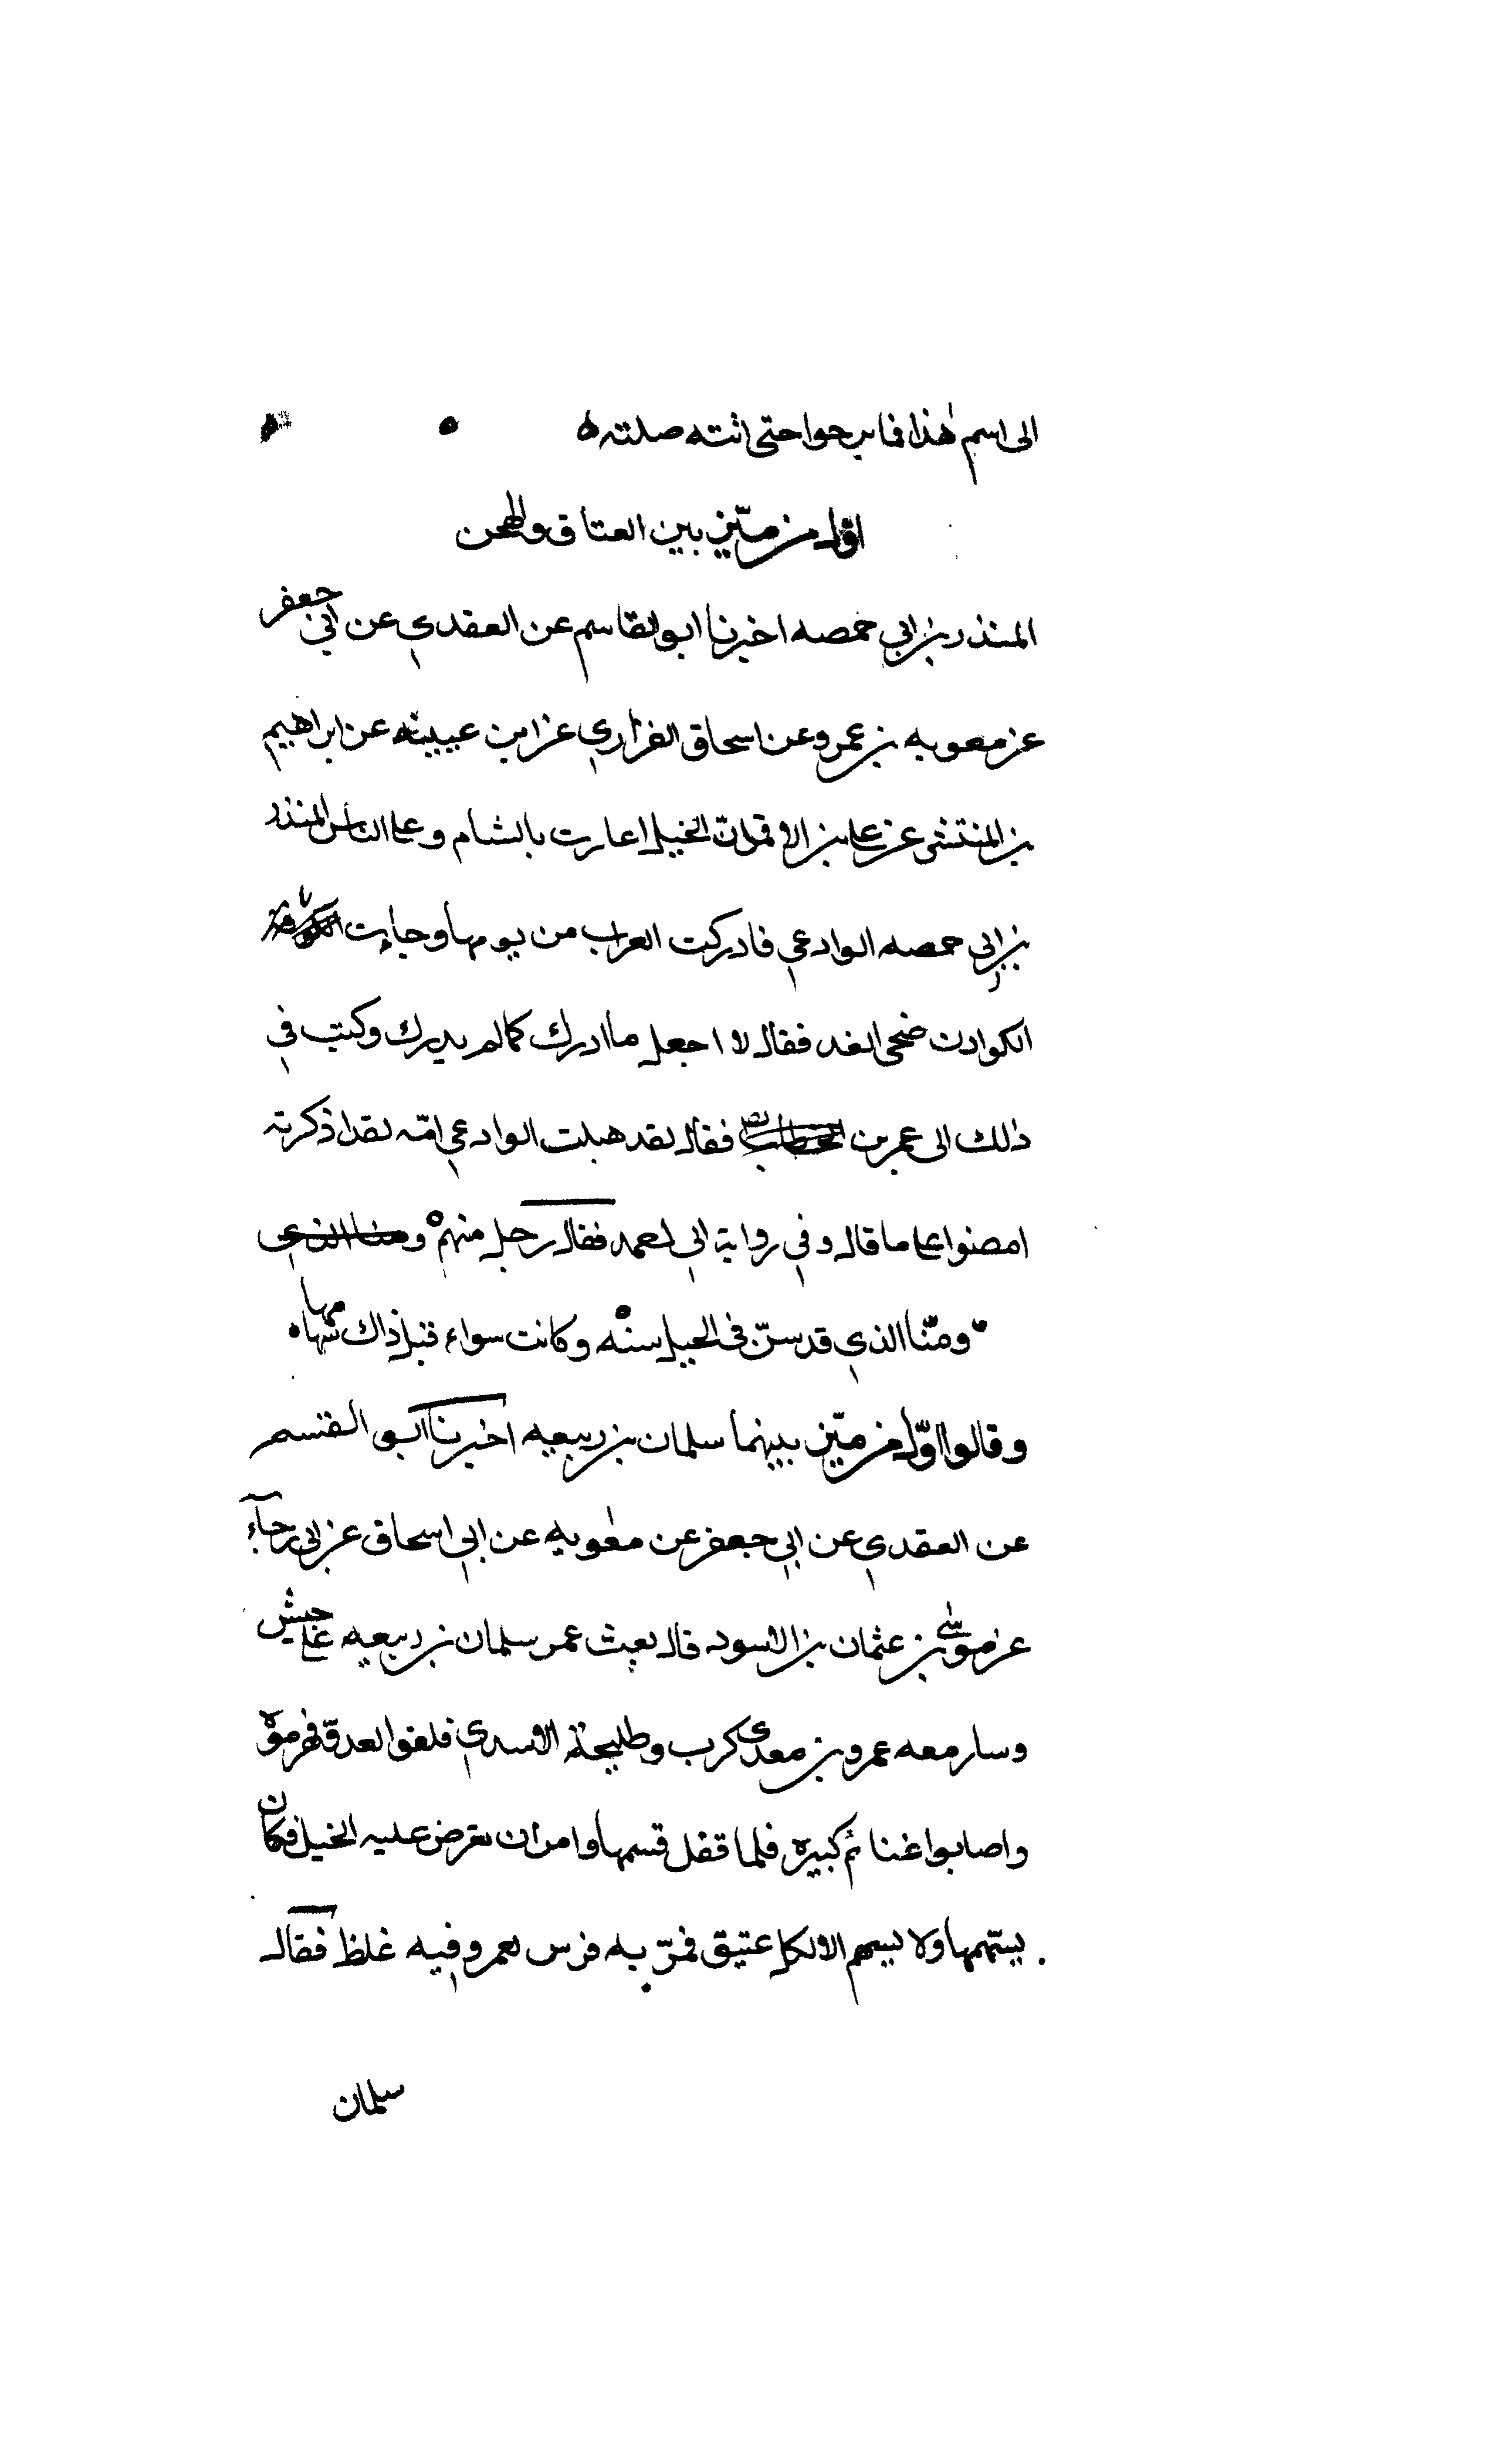 الى اسم هذا فما برحوا حتى اتته صلته ه
اول من ميّز بين العتاق والهجن
المنذر بن ابي حمصه اخبرنا ابو القاسم عن العقدي عن ابي جعفر
عن معوية بن عمرو عن اسحاق الفزاري عن ابن عيينه عن ابراهيم
بن المنتشر عن علي بن الاقمر ان الخيل اغارت بالشام وعلى الناس المنذر
بن ابي حمصه الوادعي فادركت العراب من يومها وجاءت
الكوادن ضحى الغد فقال لا اجعل ما ادرك كما لم يدرك وكتب في
ذلك الى عمر بن الخطاب فقال لقد هبلت الوادعي امّه لقد اذكرت به
امضوا على ما قال وفي رواية ابي فقال رجل منهم ومنا الذي
ومنّا الذي قد سنّ في الخيل سنه وكانت سواء قبل ذاك سهامها
وقالوا اوّل من ميّز بينهما سلمان بن ربيعه اخبرنا ابو القسم
عن العقدي عن ابي جعفر عن معوية عن ابي اسحاق عن ابي رجآء
عن موسى بن عثمان بن الاسود قال بعث عمر سلمان بن ربيعه على جيش
وسار معه عمرو بن معدى كرب وطليحة الاسدي فلقوا العدوّ فهزموه
واصابوا غنائم كبيره فلما قفل قسمها وامر ان تعرض عليه الخيل فكان
يسهمها ولا يسهم الا لكل عتيق فمرّ به فرس لعمرو فيه غلظ فقال
سلمان